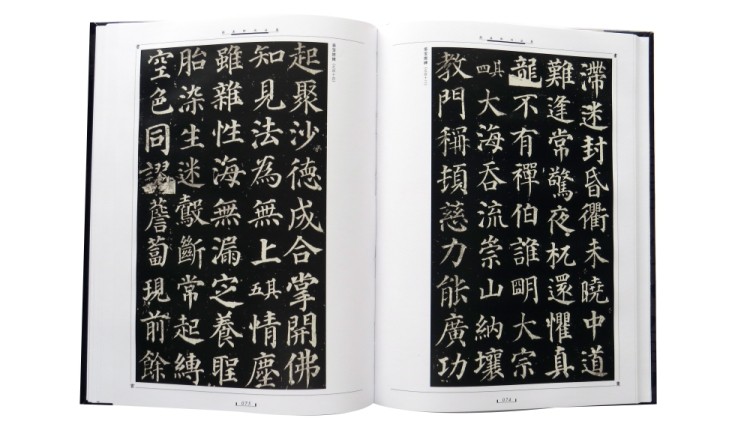 滯迷封昏衢未曉中道
難逢常驚夜杌還懼真
龍不有禪伯誰明大宗
其四大海吞流崇山納壤
教門稱頓慈力能廣功
074
起聚沙德成合掌開佛
知見法為無上其五情塵
雖雜性海無漏定養聖
胎染生迷鷇斷常起縛
空色同謬薝蔔現前餘
075